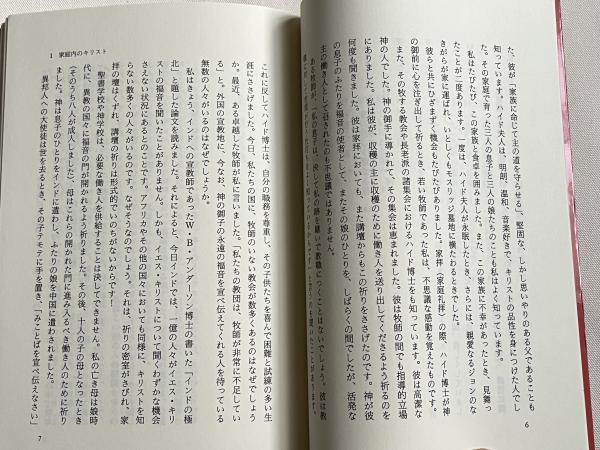 た、彼が「家族に命じて主の道を守らせる」、堅固な、しかし思いやりのある父であることも
知っています。ハイド夫人は、明朗、温和、音楽好きで、キリストの品性を身につけた人でし
た。その家庭で育った三人の息子と三人の娘たちのことも私はよく知っています。
私はたびたび、この家族と食卓を囲みました。また、この家族に不幸があったとき、見舞っ
たことが二度あります。一度は、ハイド夫人が永眠したとき、さらには、親愛なるジョンのな
きがらが家に運ばれ、いとしくもモスリッジ墓地に横たわるときでした。
彼らと共にひざまずく機会もたびたびありました。家拝(家庭礼拝)の際、ハイド博士が神
の御前に心を注ぎ出して祈るとき、若い牧師であった私は、不思議な感動を覚えたものです。
また、その牧する教会や長老派の諸集会におけるハイド博士をも知っています。彼は高潔な
神の人でした。神の御手に導かれて、その集会は恵まれました。彼は牧師の間でも指導的立場
にありました。私は彼が、収穫の主に収穫のために働き人を送り出してくださるよう祈るのを
何度も聞きました。彼は家拝においても、また講壇からもこの祈りをささげたのです。神が彼
の息子のふたりを福音の使者として、またその娘のひとりを、しばらくの間でしたが、活発な
主の働き人として召されたのも不思議ではありません。
ある牧師が、「私の息子は、決して私の跡を継いで教職につくことはないでしょう。彼は教
6
1 家庭内のキリスト
これに反してハイド博士は、自分の職務を尊重し、その子供たちを喜んで困難と試練の多い生
涯にささげました。今日、私たちの国に、牧師のいない教会が数多くあるのはなぜでしょう
か。最近、ある卓越した牧師が私に言いました。「私たちの教団は、牧師が非常に不足してい
る」と。外国の宣教地に、今なお、神の御子の永遠の福音を宣べ伝えてくれる人を待っている
無数の人々がいるのはなぜでしょうか。
私はきょう、インドへの宣教師であったW・B・アンダーソン博士の書いた「インドの極
北」と題した論文を読みました。それによると、今日インドでは、一億の人々がイエス・キリ
ストの福音を聞いたことがありません。しかも、イエス・キリストについて聞くわずかな機会
さえない状況にあるとのことです。アフリカやその他の国々においても同様に、キリストを知
らない数多くの人々がいるのです。なぜそうなのでしょう。それは、祈りの密室がさびれ、家
拝の壇はくずれ、講壇の祈りは形式的でいのちがないからです!
聖書学校や神学校は、必要な働き人を供給することは決してできません。私の亡き母は娘時
代に、異教の国々に福音の門が開かれるよう祈りました。その後、十人の子の母となったとき
(そのうち八人が成人しました)母はこれらの開かれた門に進み入るべき働き人のために祈り
ました。神は息子のひとりをインドに遣わし、ふたりの娘を中国に遣わされました。
異邦人への大使徒は世を去るとき、その子テモテに手を置き、「みことばを宣べ伝えなさい」
7